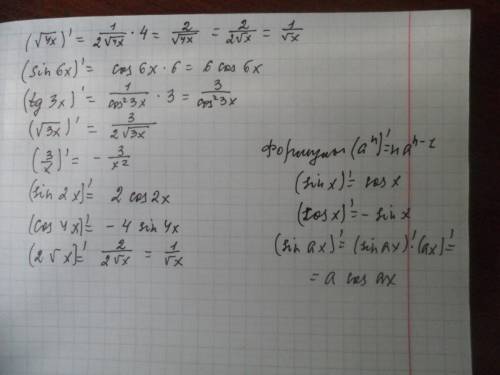 (√4x)' = 1/(2√4x) · 4 = 2/√4x = 2/(2√x) = 1/√x
(sin 6x)' = cos 6x · 6 = 6 cos 6x
(tg 3x)' = 1/(cos² 3x) · 3 = 3/(cos² 3x)
(√3x)' = 3/(2√3x)
(3/x)' = - 3/x²
(sin 2x)' = 2 cos 2x
(cos 4x)' = - 4 sin 4x
(2√x)' = 2/(2√x) = 1/√x
Формулы (aⁿ)' = n aⁿ⁻¹
(sin x)' = cos x
(cos x)' = - sin x
(sin ax)' = (sin ax)' · (ax)' =
= a cos ax